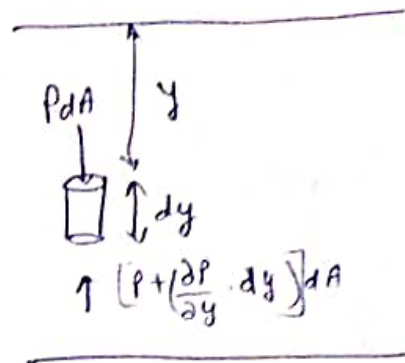 PdA
y
dy
[P+(∂P/∂y . dy)]dA